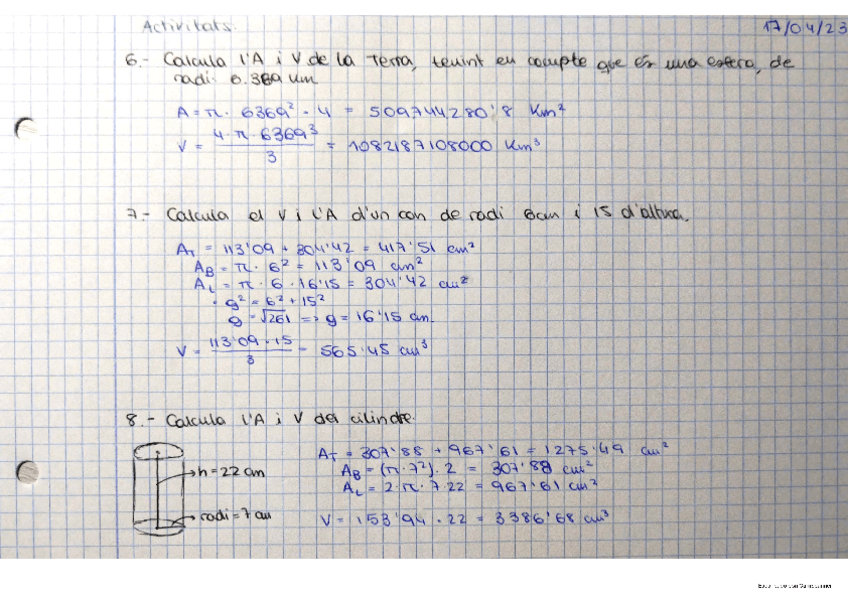 Activitats. 17/04/23
6.- Calcula l'A i V de la Terra, tenint en compte que és una esfera, de
radi 6.369 km
A = π · 6369² · 4 = 509744280'8 Km²
V = 4·π·6369³ / 3 = 1082187108000 Km³
7.- Calcula el V i l'A d'un con de radi 6cm i 15 d'altura.
A_T = 113'09 + 304'42 = 417'51 cm²
A_B = π · 6² = 113'09 cm²
A_L = π · 6 · 16'15 = 304'42 cm²
· g² = 6² + 15²
g = √261 => g = 16'15 cm.
V = 113'09 · 15 / 3 = 565'45 cm³
8.- Calcula l'A i V del cilindre.
A_T = 307'88 + 967'61 = 1275'49 cm²
h = 22 cm
A_B = (π · 7²) · 2 = 307'88 cm²
A_L = 2 · π · 7 · 22 = 967'61 cm²
radi = 7 cm
V = 153'94 · 22 = 3386'68 cm³